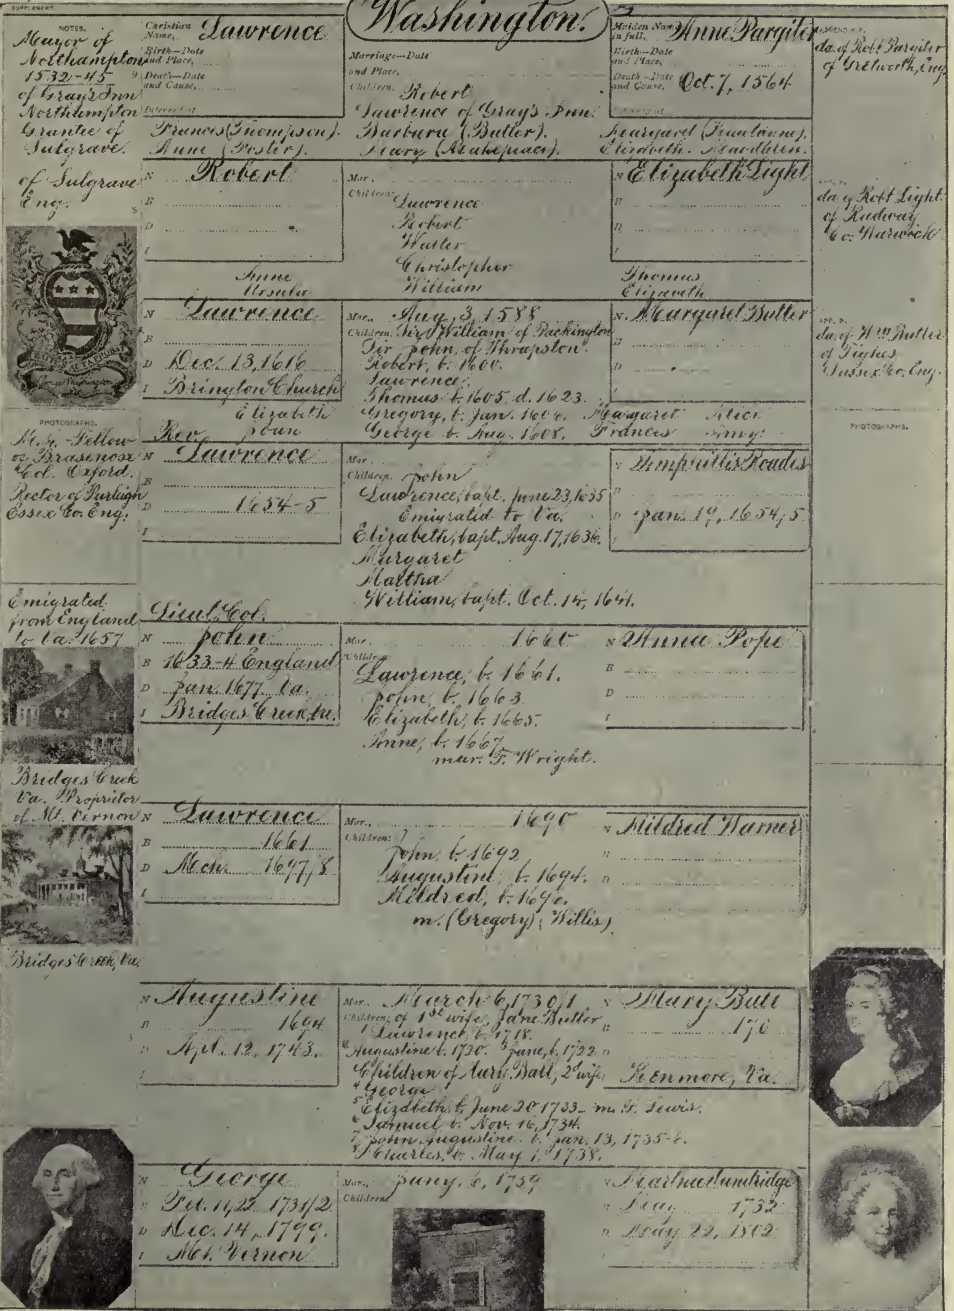 SUPPLEMENT.
Washington.
NOTES.
Mayor of
Northampton
1532-45
of Gray's Inn
Northampton
Grantee of
Sulgrave.
Christian
Name, Lawrence
Birth—Date
and Place,
Death—Date
and Cause,
Interred at
Marriage—Date
and Place,
Children: Robert
Lawrence of Gray's Inn.
Barbara (Butler).
Maiden Name
in full, Anne Pargiter
Birth—Date
and Place,
Death—Date
and Cause, Oct. 7, 1564
Interred at
da. of Robt Pargiter
of Gretworth, Eng.
Frances (Thompson).
Anne (Foster).
Mary (Makepeace).
Margaret
Elizabeth.
of Sulgrave
Eng.
N Robert
B
D
I
Mar.
Children: Lawrence
Robert
Walter
Christopher
William
N Elizabeth Light
B
D
I
da. of Robt Light
of Radway
Co. Warwick
Anne
Ursula
Thomas
Elizabeth
N Lawrence
B
D Dec. 13, 1616
I Brington Church
Mar. Aug. 3, 1588
Children: Sir William of Packington
Sir John, of Thrapston.
Robert, b. 1600.
Lawrence.
Thomas b. 1605, d. 1623.
Gregory, b. Jan. 1606. Margaret Alice
George b. Aug. 1608. Frances Amy.
N. Margaret Butler
B
D
da. of Wm Butler
of Tighes
Sussex Co. Eng.
Elizabeth
Joan
PHOTOGRAPHS.
PHOTOGRAPHS.
M. A. - Fellow
of Brasenose
Col. Oxford.
Rector of Purleigh
Essex Co. Eng.
Rev.
N Lawrence
B
D 1654-5
I
Mar.
Children. John
Lawrence, bapt. June 23, 1635
Emigrated to Va.
Elizabeth, bapt. Aug. 17, 1636.
Margaret
Martha
William, bapt. Oct. 14, 1641.
N Amphillis Roades
B
D Jan. 19, 1654/5
I
Emigrated
from England
to Va. 1657
Lieut. Col.
N John
B 1633-4 England
D Jan. 1677 Va.
I Bridges Creek, Va.
Mar. 1660
Children Lawrence, b. 1661.
John, b. 1663
Elizabeth, b. 1665.
Anne, b. 1667
mar. F. Wright.
N Anna Pope
B
D
I
Bridges Creek
Va. Proprietor
of Mt. Vernon
N Lawrence
B 1661
D Mch. 1697/8
I
Mar. 1690
Children:
John b. 1692
Augustine, b. 1694.
Mildred, b. 1696.
m. (Gregory) (Willis)
N Mildred Warner
B
D
Bridges Creek, Va.
N Augustine
B 1694
D Apl. 12, 1743.
I
Mar. March 6, 1730/1
Children: of 1st wife, Jane Butler
1 Lawrence, b. 1718.
2 Augustine b. 1720. 3 Jane, b. 1722
Children of Mary Ball, 2d wife
4 George
5 Elizabeth b. June 20 1733 - m. F. Lewis.
6 Samuel b. Nov. 16, 1734.
7 John Augustine. b. Jan. 13, 1735-6.
8 Charles, b. May 1, 1738.
N Mary Ball
B 170
D
Kenmore, Va.
N George
B Feb. 11/22 1731/2
D Dec. 14, 1799.
I Mt. Vernon
Mar. Jany. 6, 1759
Children
N Martha Dandridge
B May 1732
D May 22, 1802